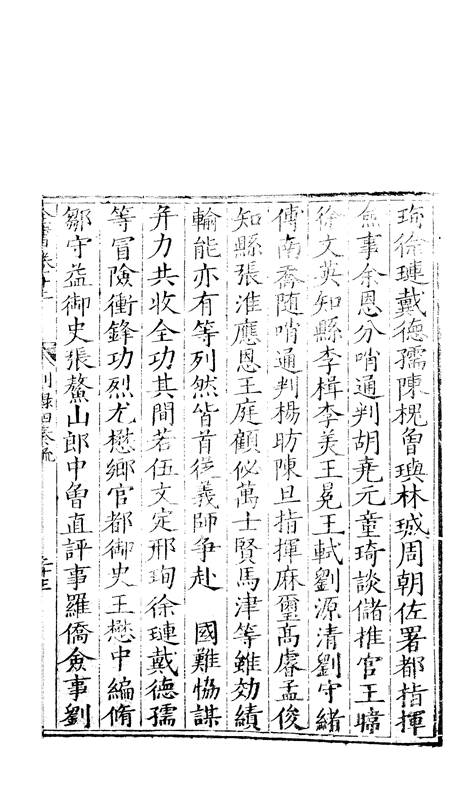 珣徐璉戴德孺陳槐曾璵林珹周朝佐署都指揮
僉事余恩分哨通判胡堯元童琦談儲推官王暐
徐文英知縣李楫李美王冕王軾劉源清劉守緒
傅南喬隨哨通判楊昉陳旦指揮麻璽高睿孟俊
知縣張淮應恩王庭顧佖萬士賢馬津等雖効績
輸能亦有等列然皆首從義師争赴　國難恊謀
并力共收全功其間若伍文定邢珣徐璉戴德孺
等冒險衝鋒功烈尤懋鄉官都御史王懋中編脩
鄒守益御史張鰲山郎中曾直評事羅僑僉事劉
别録四奏疏